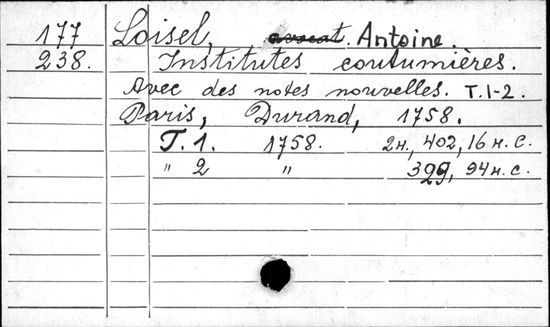 177 Loisel, avocat. Antoine.
238. Institutes coutumières.
Avec des notes nouvelles. T.1-2.
Paris, Durand, 1758.
T. 1. 1758. 2н., 402, 16 н. с.
" 2 " 329, 94 н. с.